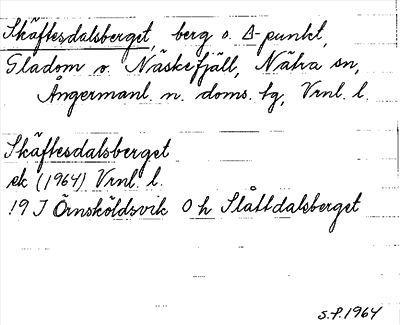 Skäftesdalsberget, berg o. Δ-punkt,
Gladom o. Näskefjäll, Nätra sn,
Ångermanl. n. doms. tg, Vrnl. l.
Skäftesdalsberget
ek (1964) Vrnl. l.
19 J Örnsköldsvik 0 h Slåttdalsberget
S.P. 1964